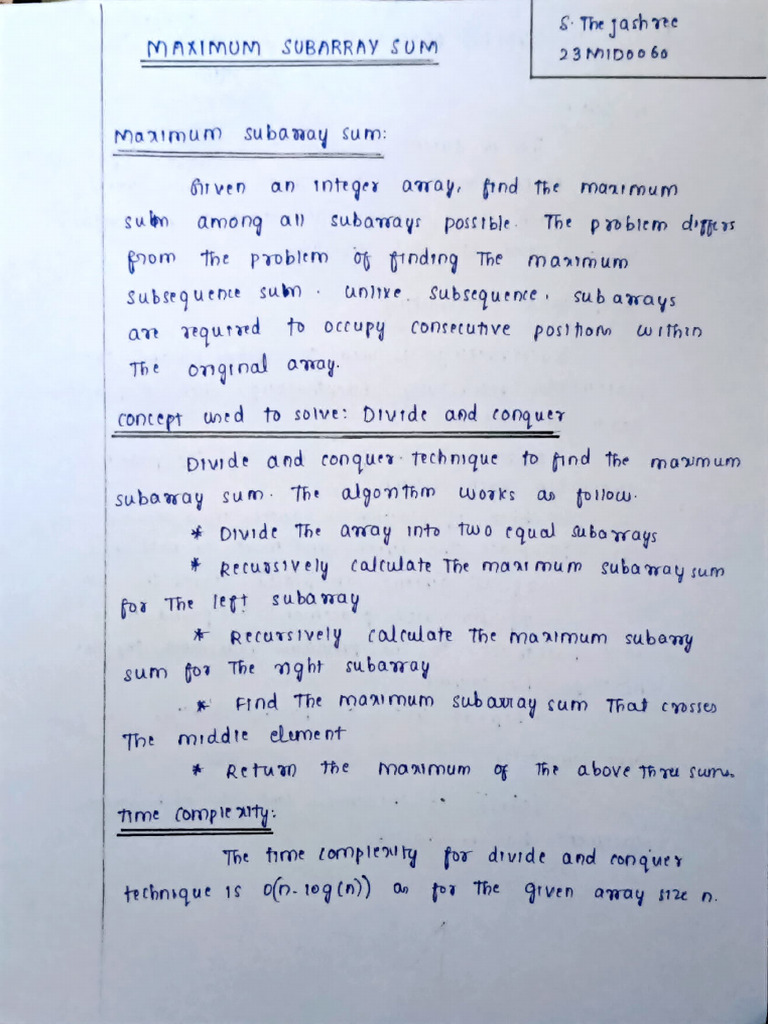 MAXIMUM SUBARRAY SUM
S. Thejashree
23MID0060
Maximum subarray sum:
Given an integer array, find the maximum
sum among all subarrays possible. The problem differs
from the problem of finding The maximum
subsequence sum. unlike subsequence, subarrays
are required to occupy consecutive positions within
The original array.
concept used to solve: Divide and conquer
Divide and conquer technique to find the maximum
subarray sum. The algorithm works as follow.
* Divide The array into two equal subarrays
* Recursively calculate The maximum subarray sum
for The left subarray
* Recursively calculate The maximum subarry
sum for The right subarray
* Find The maximum subarray sum That crosses
The middle element
* Return the maximum of The above three sums.
time complexity:
The time complexity for divide and conquer
technique is O(n.log(n)) as for the given array size n.